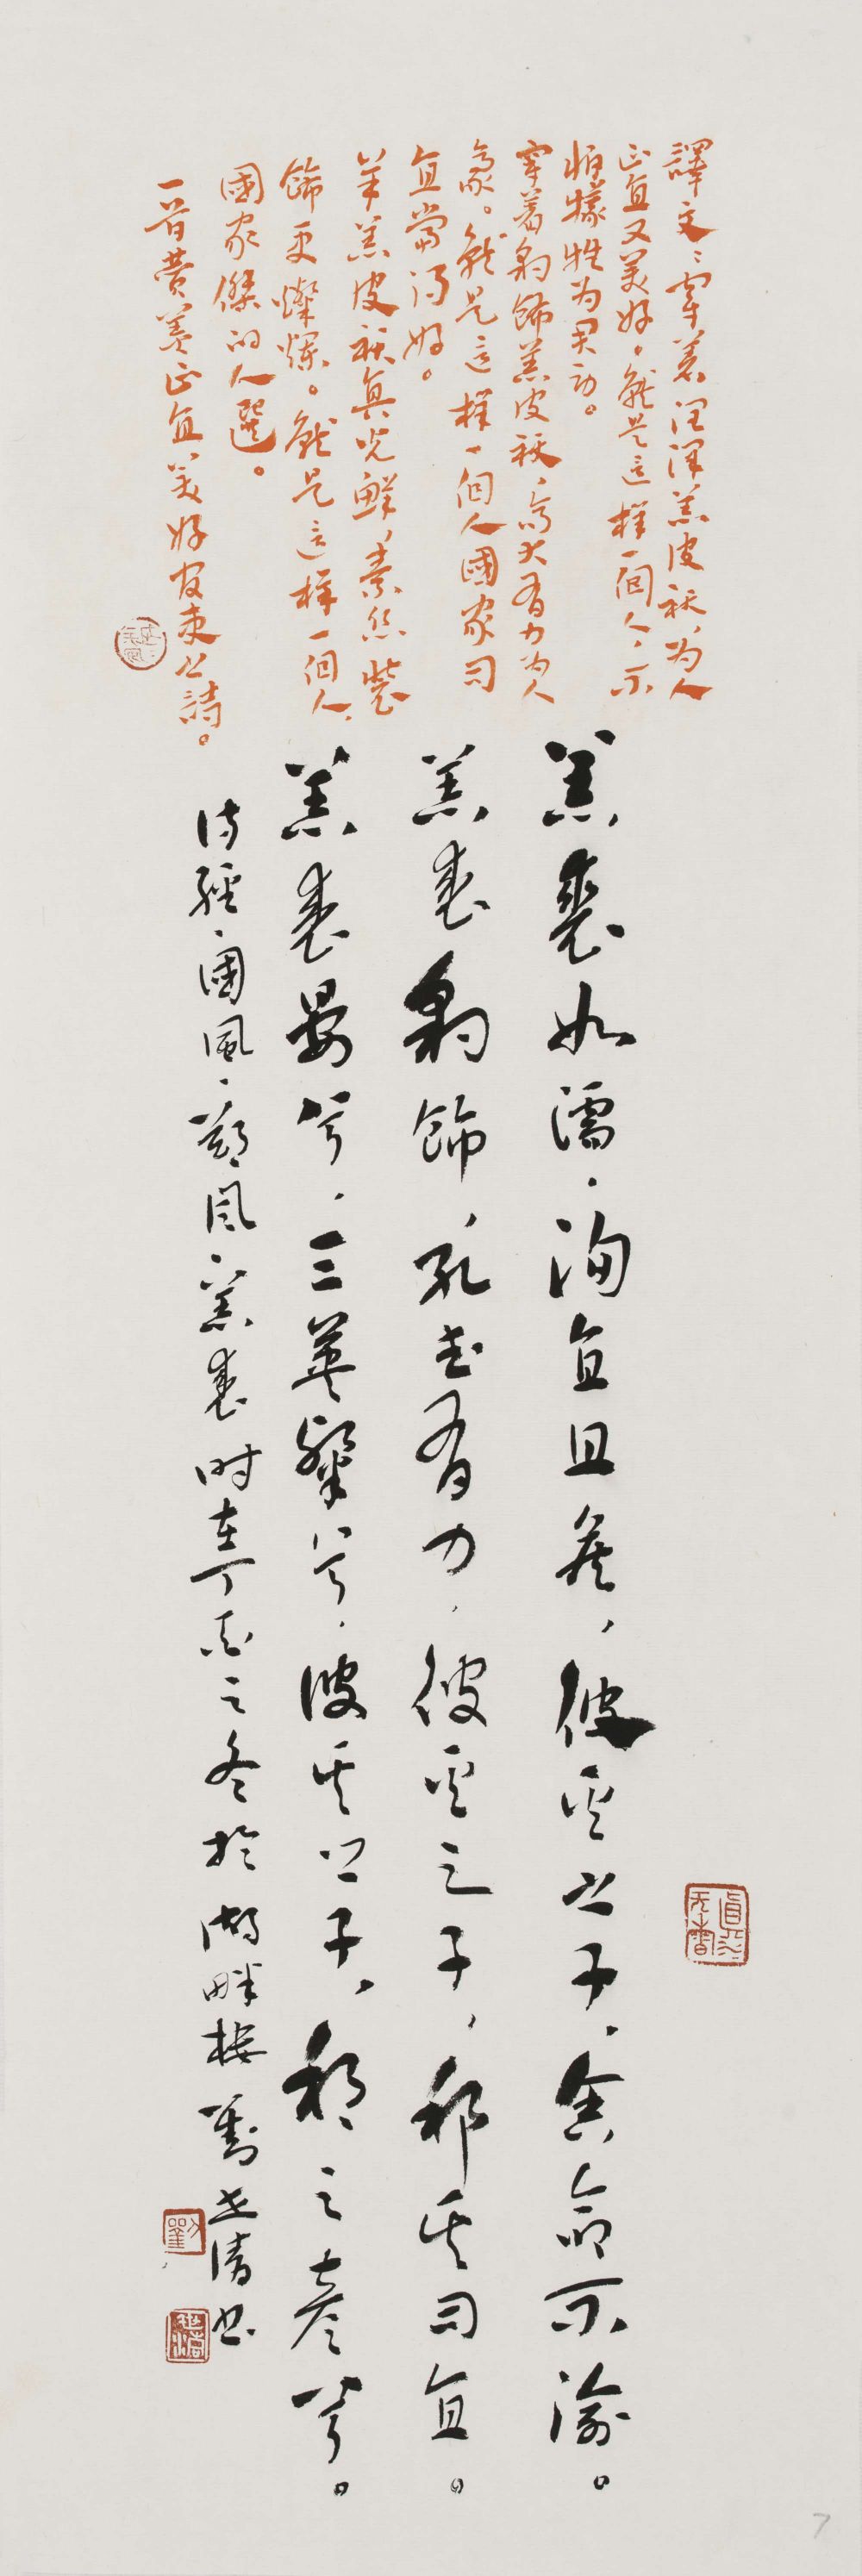 譯文：穿著潤澤羔皮袄，为人
正直又美好。就是这樣一個人，不
怕犧牲为君勤。
穿著豹飾羔皮袄，高大有力为人
豪。就是这樣一個人國家司
直當得好。
羊羔皮袄真光鲜，素丝裝
飾更燦爛。就是這樣一個人，
國家傑的人選。
一首赞美正直美好官吏之詩。
羔裘如濡，洵直且侯，彼其之子，舍命不渝。
羔裘豹飾，孔武有力，彼其之子，邦其司直。
羔裘晏兮，三英粲兮，彼其之子，邦之彦兮。
诗經·國風·鄭風·羔裘 时在丁亥之冬於湖畔楼 劉世清书
7